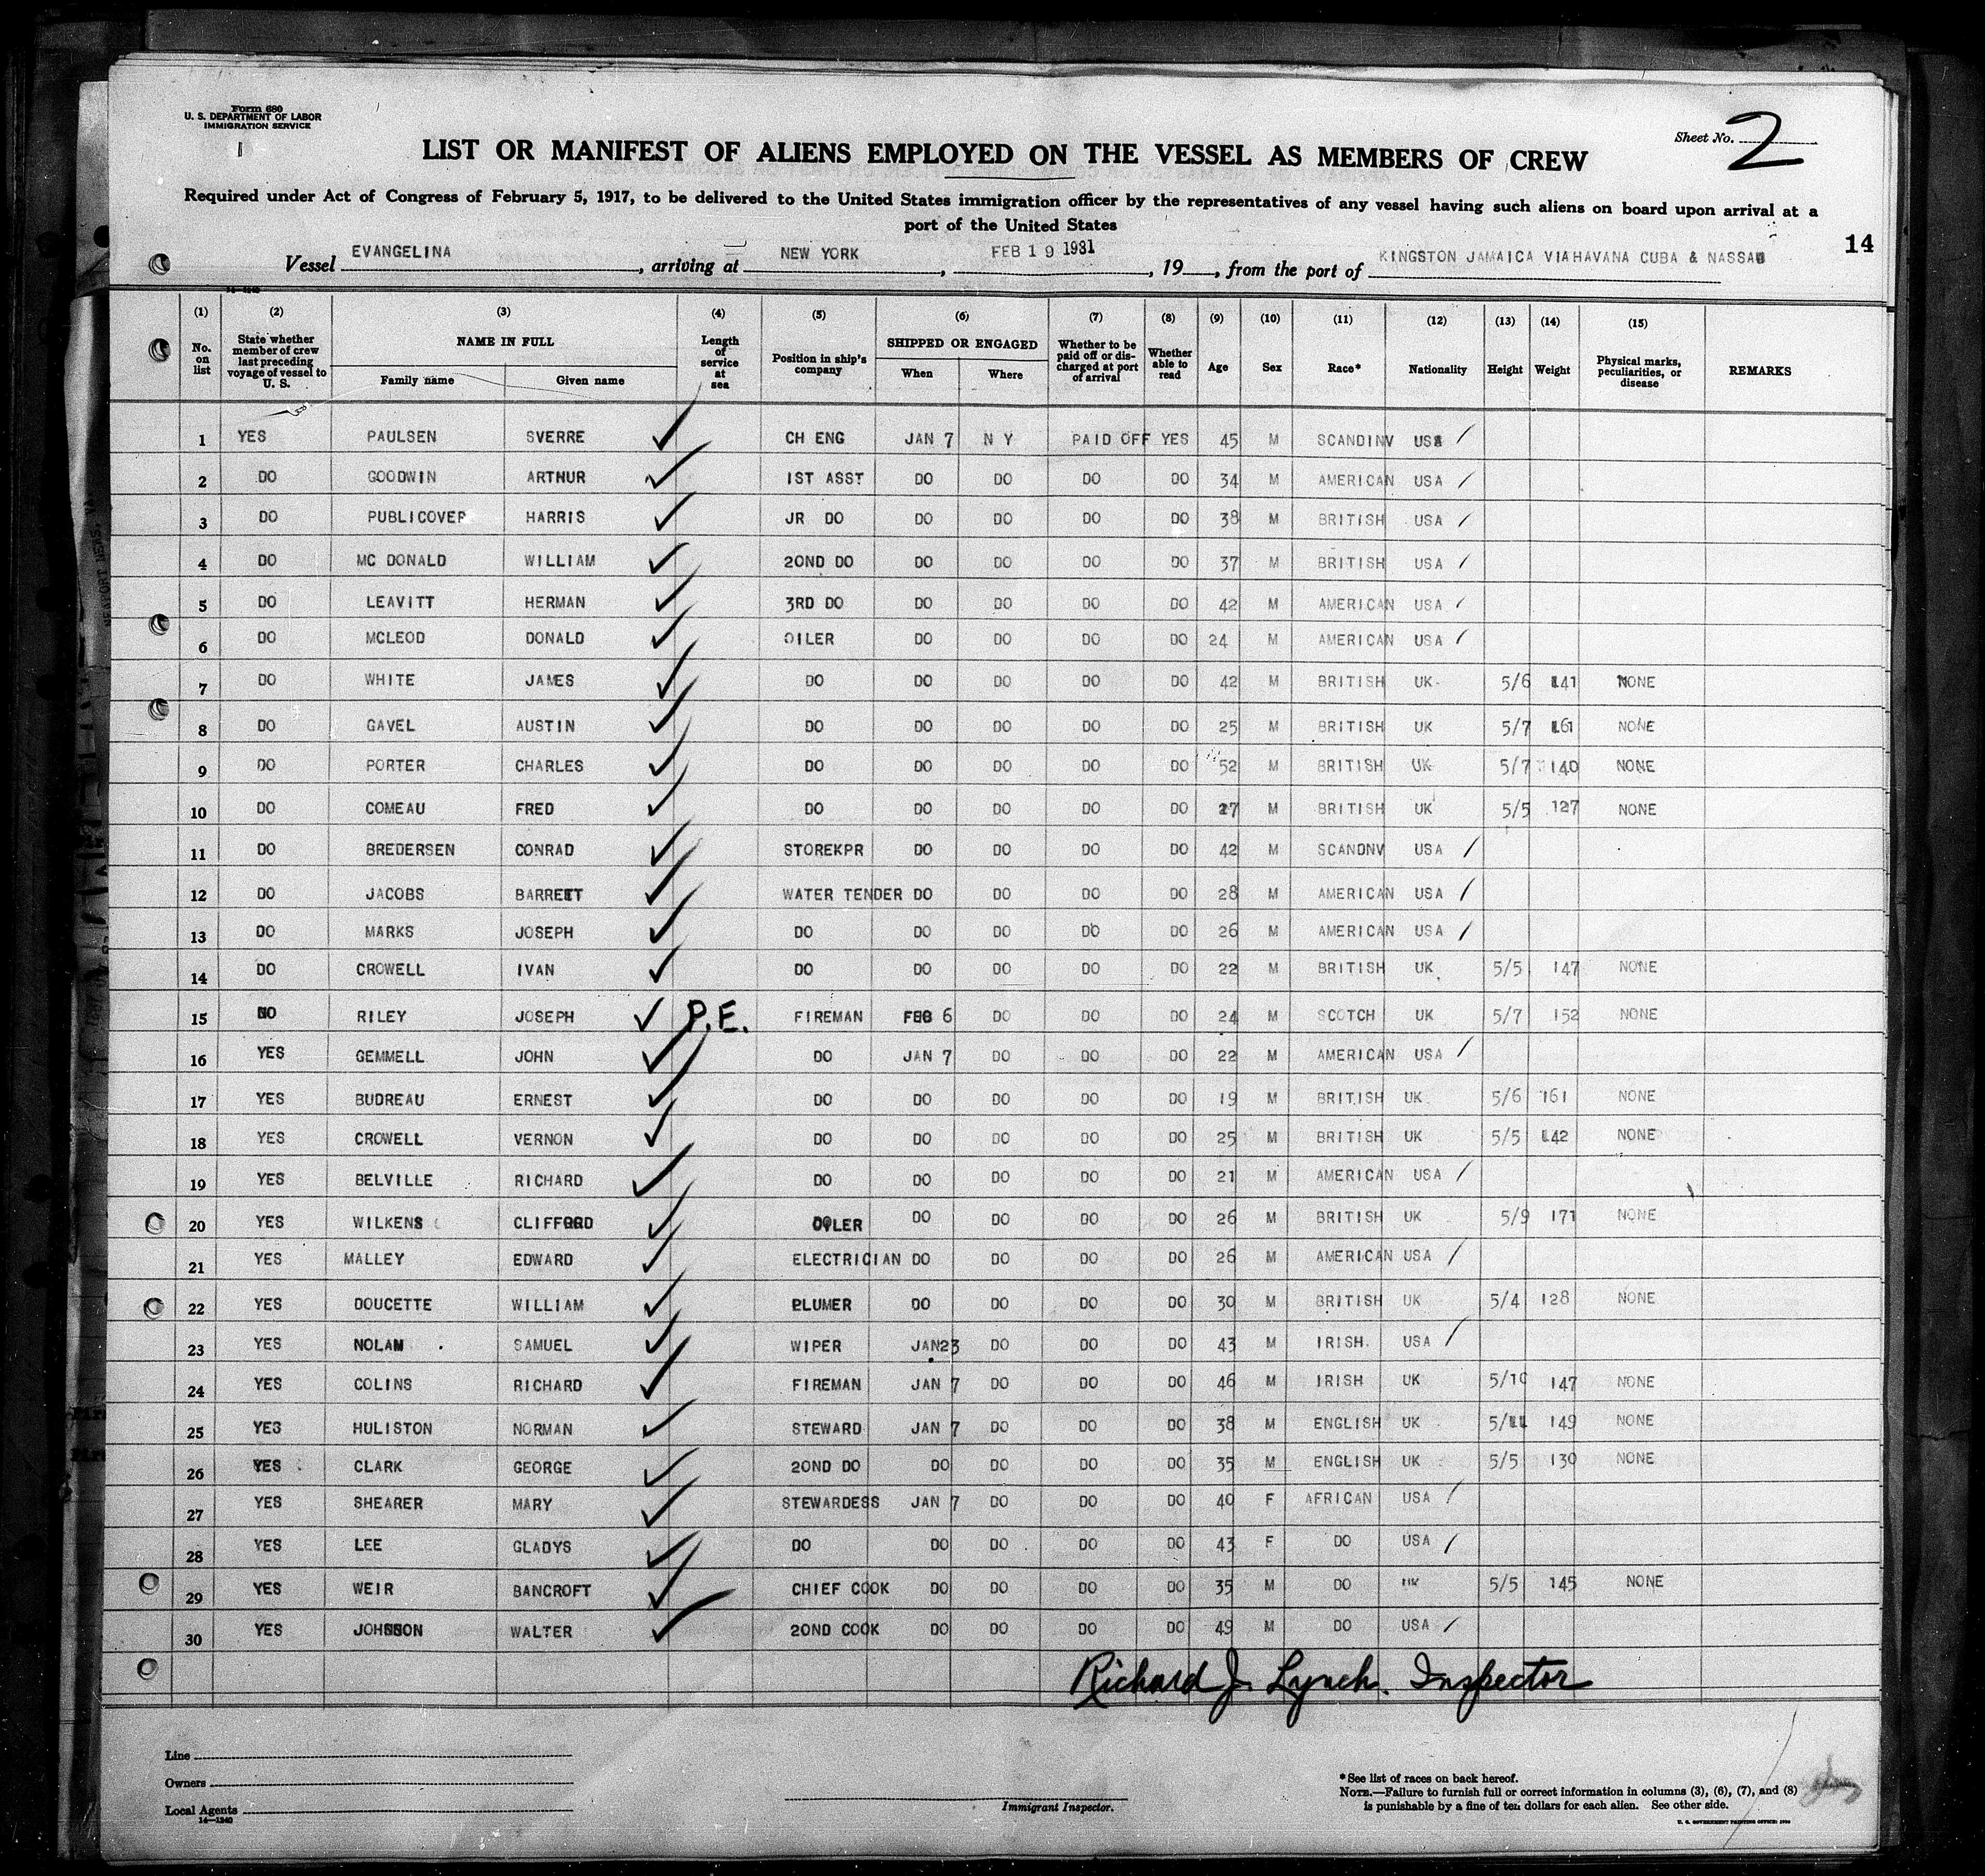 Form 680
U. S. DEPARTMENT OF LABOR
IMMIGRATION SERVICE
Sheet No. 2
LIST OR MANIFEST OF ALIENS EMPLOYED ON THE VESSEL AS MEMBERS OF CREW
Required under Act of Congress of February 5, 1917, to be delivered to the United States immigration officer by the representatives of any vessel having such aliens on board upon arrival at a
port of the United States
14
Vessel EVANGELINA, arriving at NEW YORK, FEB 19 1931, 19, from the port of KINGSTON JAMAICA VIAHAVANA CUBA & NASSAU
(1) (2) (3) (4) (5) (6) (7) (8) (9) (10) (11) (12) (13) (14) (15)
No. on list State whether member of crew last preceding voyage of vessel to U. S. NAME IN FULL Family name Given name Length of service at sea Position in ship's company SHIPPED OR ENGAGED When Where Whether to be paid off or discharged at port of arrival Whether able to read Age Sex Race* Nationality Height Weight Physical marks, peculiarities, or disease REMARKS
1 YES PAULSEN SVERRE CH ENG JAN 7 N Y PAID OFF YES 45 M SCANDINV USA
2 DO GOODWIN ARTHUR 1ST ASST DO DO DO DO 34 M AMERICAN USA
3 DO PUBLICOVER HARRIS JR DO DO DO DO DO 38 M BRITISH USA
4 DO MC DONALD WILLIAM 2OND DO DO DO DO DO 37 M BRITISH USA
5 DO LEAVITT HERMAN 3RD DO DO DO DO DO 42 M AMERICAN USA
6 DO MCLEOD DONALD OILER DO DO DO DO 24 M AMERICAN USA
7 DO WHITE JAMES DO DO DO DO DO 42 M BRITISH UK 5/6 141 NONE
8 DO GAVEL AUSTIN DO DO DO DO DO 25 M BRITISH UK 5/7 161 NONE
9 DO PORTER CHARLES DO DO DO DO DO 52 M BRITISH UK 5/7 140 NONE
10 DO COMEAU FRED DO DO DO DO DO 27 M BRITISH UK 5/5 127 NONE
11 DO BREDERSEN CONRAD STOREKPR DO DO DO DO 42 M SCANDNV USA
12 DO JACOBS BARRETT WATER TENDER DO DO DO DO 28 M AMERICAN USA
13 DO MARKS JOSEPH DO DO DO DO DO 26 M AMERICAN USA
14 DO CROWELL IVAN DO DO DO DO DO 22 M BRITISH UK 5/5 147 NONE
15 NO RILEY JOSEPH P.E. FIREMAN FEB 6 DO DO DO 24 M SCOTCH UK 5/7 152 NONE
16 YES GEMMELL JOHN DO JAN 7 DO DO DO 22 M AMERICAN USA
17 YES BUDREAU ERNEST DO DO DO DO DO 19 M BRITISH UK 5/6 161 NONE
18 YES CROWELL VERNON DO DO DO DO DO 25 M BRITISH UK 5/5 142 NONE
19 YES BELVILLE RICHARD DO DO DO DO DO 21 M AMERICAN USA
20 YES WILKENS CLIFFORD OILER DO DO DO DO 26 M BRITISH UK 5/9 171 NONE
21 YES MALLEY EDWARD ELECTRICIAN DO DO DO DO 26 M AMERICAN USA
22 YES DOUCETTE WILLIAM PLUMER DO DO DO DO 30 M BRITISH UK 5/4 128 NONE
23 YES NOLAN SAMUEL WIPER JAN23 DO DO DO 43 M IRISH USA
24 YES COLINS RICHARD FIREMAN JAN 7 DO DO DO 46 M IRISH UK 5/10 147 NONE
25 YES HULISTON NORMAN STEWARD JAN 7 DO DO DO 38 M ENGLISH UK 5/11 149 NONE
26 YES CLARK GEORGE 2OND DO DO DO DO DO 35 M ENGLISH UK 5/5 130 NONE
27 YES SHEARER MARY STEWARDESS JAN 7 DO DO DO 40 F AFRICAN USA
28 YES LEE GLADYS DO DO DO DO DO 43 F DO USA
29 YES WEIR BANCROFT CHIEF COOK DO DO DO DO 35 M DO UK 5/5 145 NONE
30 YES JOHNSON WALTER 2OND COOK DO DO DO DO 49 M DO USA
Richard J. Lynch. Inspector
Line
Owners
Local Agents
14—1240
Immigrant Inspector.
*See list of races on back hereof.
NOTE.—Failure to furnish full or correct information in columns (3), (6), (7), and (8)
is punishable by a fine of ten dollars for each alien. See other side.
U. S. GOVERNMENT PRINTING OFFICE: 1930